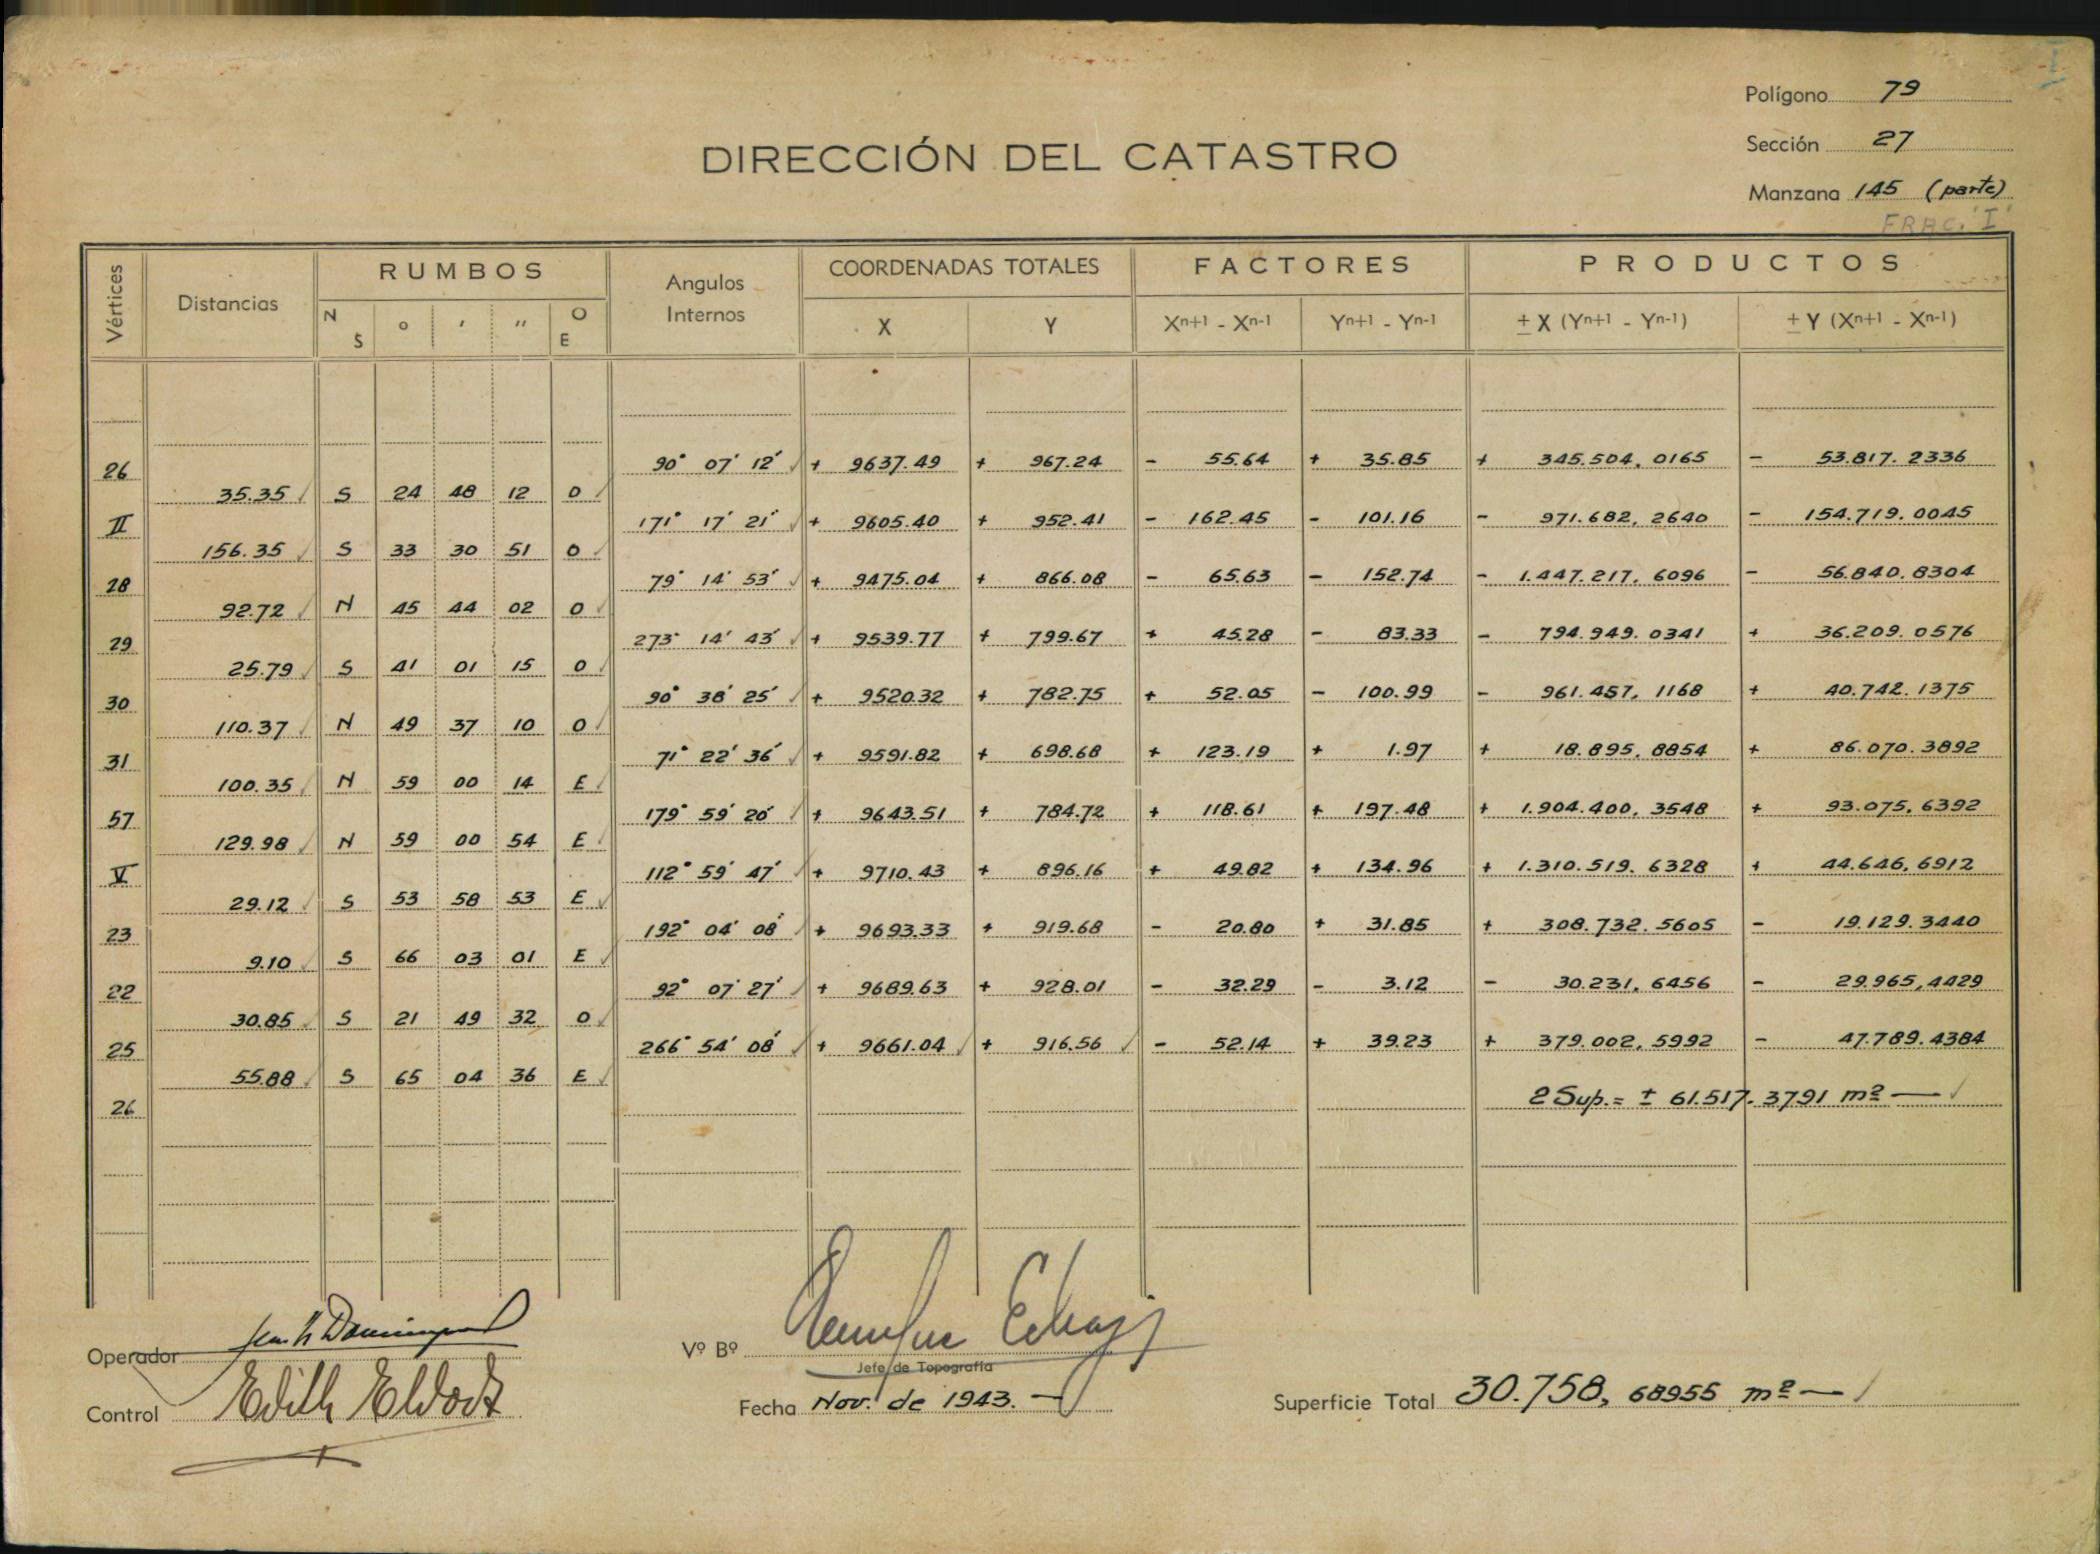 Polígono 79
Sección 27
Manzana 145 (parte)
FRAC. "I"
DIRECCIÓN DEL CATASTRO
Vértices Distancias RUMBOS Angulos Internos COORDENADAS TOTALES FACTORES PRODUCTOS
N S ° ' '' O E X Y Xn+1 - Xn-1 Yn+1 - Yn-1 ± X (Yn+1 - Yn-1) ± Y (Xn+1 - Xn-1)
26 90° 07' 12" + 9637.49 + 967.24 - 55.64 + 35.85 + 345.504,0165 - 53.817.2336
35.35 S 24 48 12 O
II 171° 17' 21" + 9605.40 + 952.41 - 162.45 - 101.16 - 971.682,2640 - 154.719.0045
156.35 S 33 30 51 O
28 79° 14' 53" + 9475.04 + 866.08 - 65.63 - 152.74 - 1.447.217,6096 - 56.840.8304
92.72 N 45 44 02 O
29 273° 14' 43" + 9539.77 + 799.67 + 45.28 - 83.33 - 794.949.0341 + 36.209.0576
25.79 S 41 01 15 O
30 90° 38' 25" + 9520.32 + 782.75 + 52.05 - 100.99 - 961.457,1168 + 40.742.1375
110.37 N 49 37 10 O
31 71° 22' 36" + 9591.82 + 698.68 + 123.19 + 1.97 + 18.895,8854 + 86.070.3892
100.35 N 59 00 14 E
57 179° 59' 20" + 9643.51 + 784.72 + 118.61 + 197.48 + 1.904.400,3548 + 93.075,6392
129.98 N 59 00 54 E
V 112° 59' 47" + 9710.43 + 896.16 + 49.82 + 134.96 + 1.310.519.6328 + 44.646,6912
29.12 S 53 58 53 E
23 192° 04' 08" + 9693.33 + 919.68 - 20.80 + 31.85 + 308.732.5605 - 19.129.3440
9.10 S 66 03 01 E
22 92° 07' 27" + 9689.63 + 928.01 - 32.29 - 3.12 - 30.231,6456 - 29.965,4429
30.85 S 21 49 32 O
25 266° 54' 08" + 9661.04 + 916.56 - 52.14 + 39.23 + 379.002,5992 - 47.789.4384
55.88 S 65 04 36 E
26 2 Sup.= ± 61.517.3791 m²
Operador
Vº Bº
Jefe de Topografía
Control Edith
Fecha Nov. de 1943.
Superficie Total 30.758,68955 m²